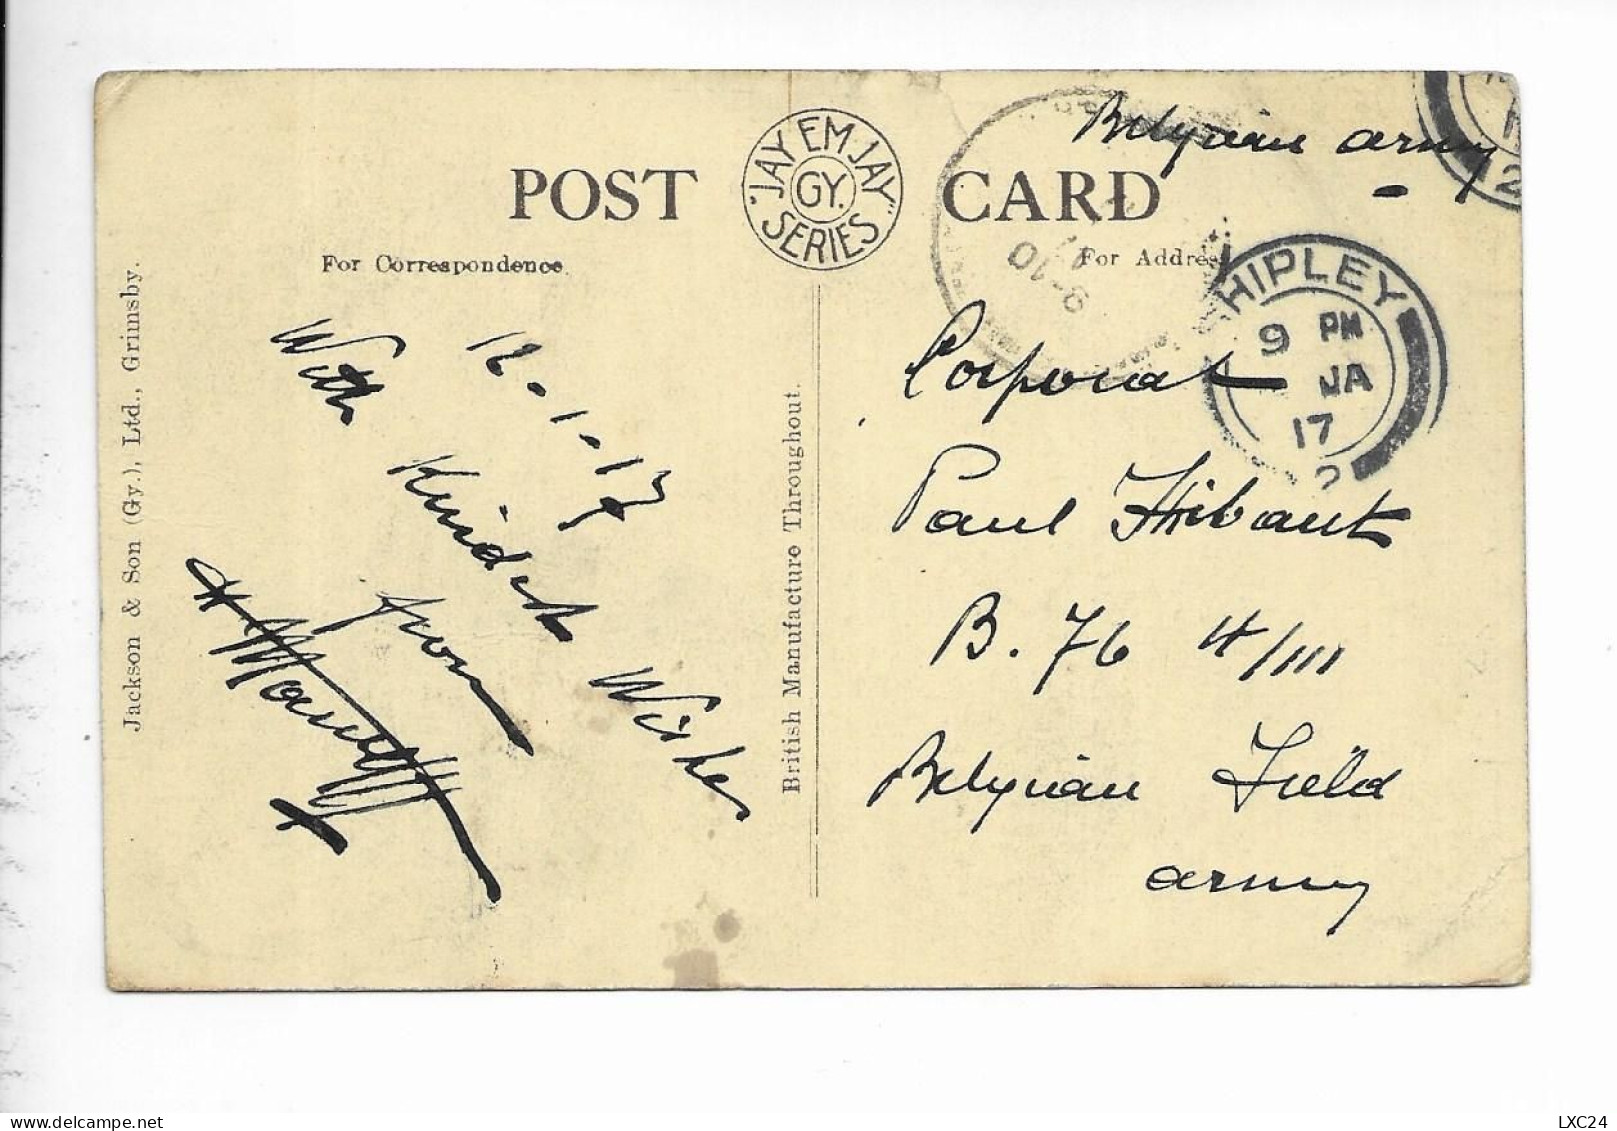 Belgian army
POST CARD
"JAY EM JAY" SERIES
GY.
For Correspondence
For Address
SHIPLEY
9 PM
JA
17
12
8-10
Jackson & Son (Gy.), Ltd., Grimsby.
British Manufacture Throughout.
12-1-17
With Kindest Wishes
from
Corporal
Paul Thibaut
B. 76 4/III
Belgian Field
army
LXC24